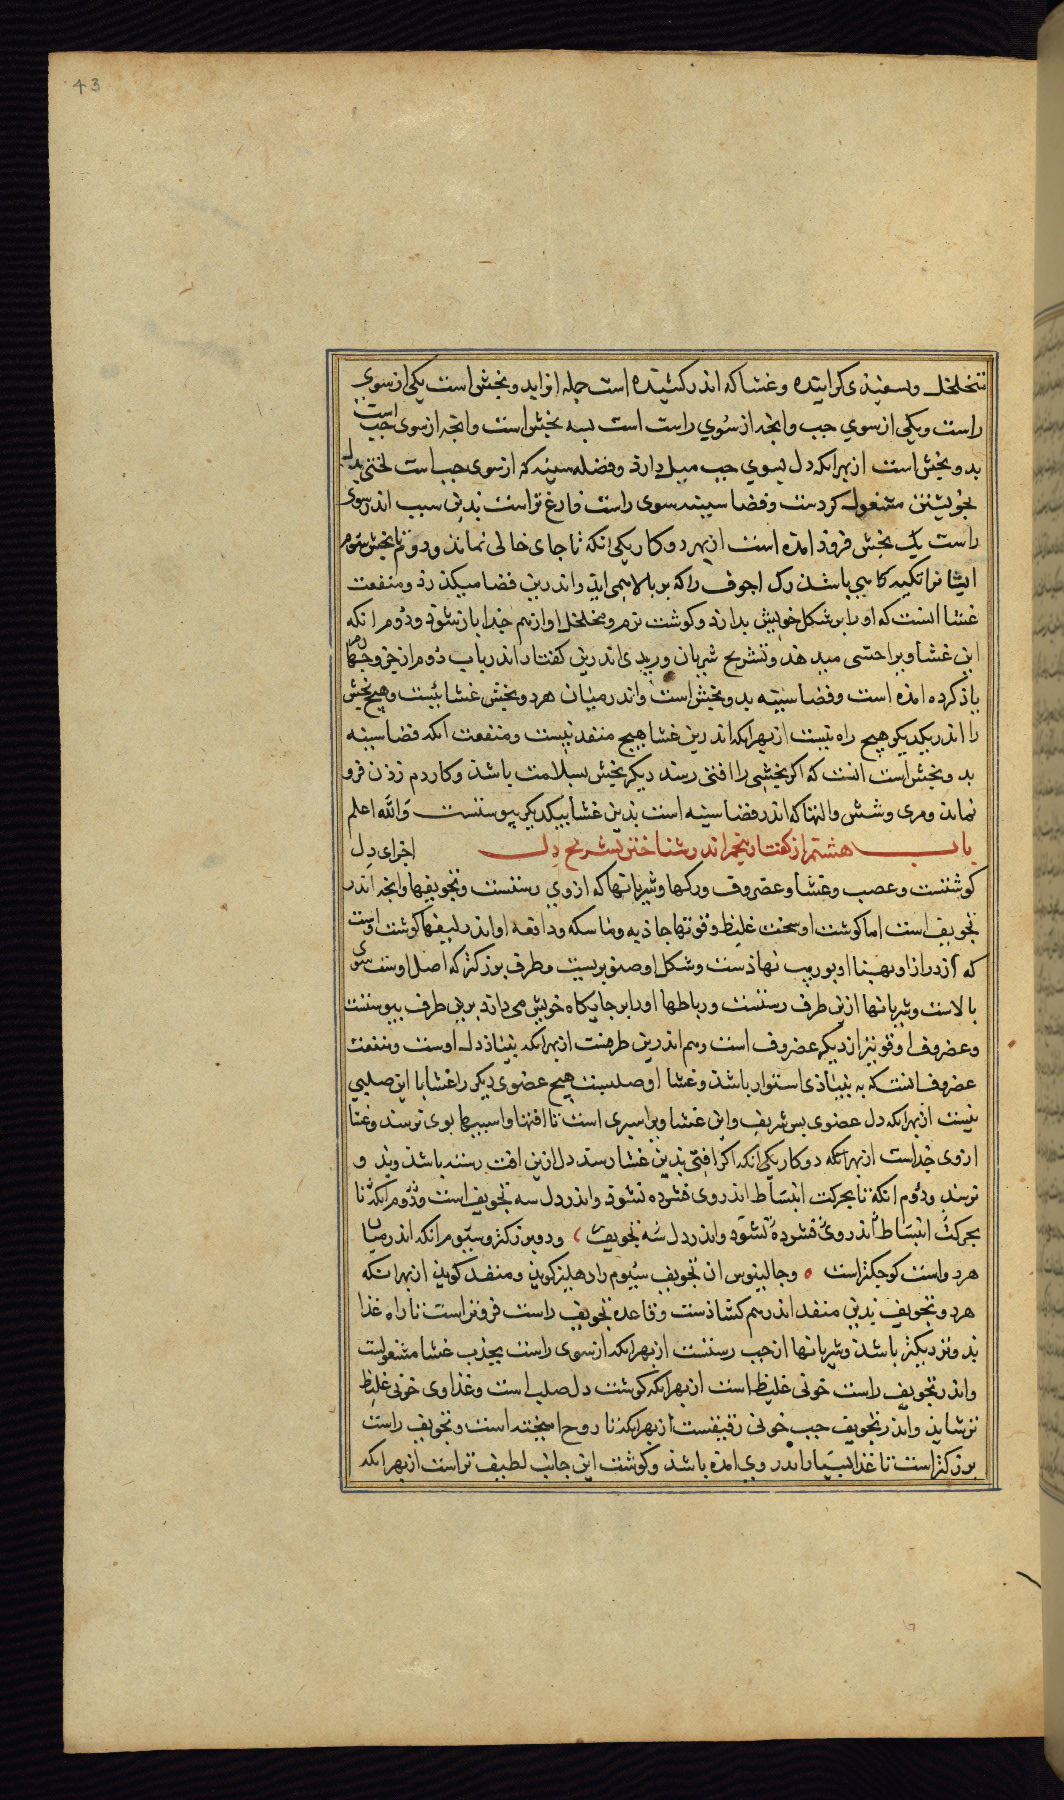 43
متخلخل وبسفیدی کراینده وغشا که اندر کشیده است جمله او اید وبخش است یکی از سوی
راست ویکی از سوی جب وانجه از سوی راست است بسه بخش است وانجه از سوی جب است
بدو بخش است از بهر انکه دل بسوی جب میل دارد وفضله سینه که از سوی جب است لختی بدل
بخویشتن مشغول کردست وفضا سینه سوی راست فارغ تر است بدین سبب اندر سوی
راست یک بخش فزود امده است از بهر دو کار یکی انکه تا جای خالی نماند ودوم تا بخش سوم
ایشانرا تکیه کاهی باشد رک اجوف را که بر بالا همی اید واندرین فضا میکذرد ومنفعت
غشا انست که او را بر شکل خویش بدارد وکوشت نرم ومتخلخل او از هم جدا باز نشود ودوم انکه
این غشا ویرا حسی میدهد وتشریح شریان وریدی اندرین کفتار اندر باب دوم از جزو جهارم
یاذ کرده امده است وفضا سینه بدو بخش است واندر میان هر دو بخش غشائیست وهیج بخش
را اندر یکدیکر هیج راه نیست از بهر انکه اندرین غشا هیج منفذ نیست ومنفعت انکه فضا سینه
بدو بخش است انست که اکر بخشی را افتی رسد دیکر بخش بسلامت باشد وکار دم زدن فرو
نماند ومری وشش والتها که اندر فضا سینه است بدین غشا بیکدیکر پیوستست والله اعلم
باب هشتم از کفتار پنجم اندر شناختن تشریح دل اجزای دل
کوشتست وعصب وغشا وغضروف ورکها وشریانها که از وی رستست وتجویفها وانجه اندر
تجویف است اما کوشت او سخت غلیظ وقوتها جاذبه وماسکه ودافعه او اندر لیفها کوشت اوست
که از درازا وبهنا او بوریب نهاذست وشکل او صنوبریست وطرف بزرکتر که اصل اوست سوی
بالاست وشریانها ازین طرف رستست ورباطها او را بر جایکاه خویش می دارد برین طرف پیوستست
وغضروف او قوی تر از دیکر غضروف است وهم اندرین طرفست از بهر انکه بنیاذ دل اوست ومنفعت
غضروف انست که به بنیاذی استوار باشد وغشا او صلبست هیج عضوی دیکر را غشا با این صلبی
نیست از بهر انکه دل عضوی بس شریف واین غشا ویرا سپری است تا افتها واسیبها بوی نرسد وغشا
از وی جداست از بهر انکه دو کار یکی انکه اکر افتی بدین غشا رسد دل ازین افت رسته باشد وبد و
نرسد ودوم انکه تا بحرکت انبساط اندر وی فشوده نشود واندر دل سه تجویف است ودوم انکه تا
بحرکت انبساط اندر وی فشوده نشود واندر دل سه تجویف ودو بزرکتر وسیوم انکه اندر میان
هر دواست کوجکتر است وجالینوس ان تجویف سیوم را دهلیز کوید ومنفذ کوید از بهر انکه
هر دو تجویف بدین منفذ اندر هم کشاذست وقاعده تجویف راست فروتر است تا راه غذا
بدو نزدیکتر باشد وشریانها از جب رستست از بهر انکه از سوی راست بجذب غشا مشغولست
واندر تجویف راست خونی غلیظ است از بهر انکه کوشت دل صلب است وغذا وی خونی غلیظ
تر شاید واندر تجویف جب خونی رقیقست از بهر انکه تا روح امیخته است وتجویف راست
بزرکتر است تا غذا بسیار اندر وی امده باشد وکوشت این جانب لطیف تر است از بهر انکه